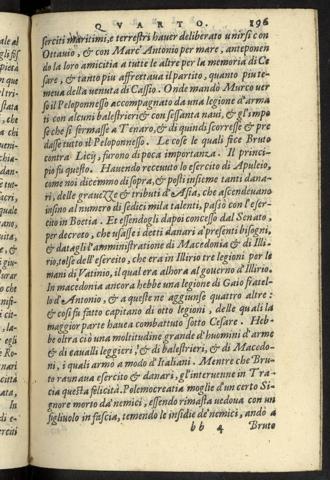 QVARTO. 196
serciti maritimi, e terrestri hauer deliberato unirsi con
Ottauio, & con Marc' Antonio per mare, anteponen
do la loro amicitia a tutte le altre per la memoria di Ce
sare, & tanto piu affrettaua il partito, quanto piu te-
meua della uenuta di Cassio. Onde mandò Murco uer
so il Peloponnesso accompagnato da una legione d'arma
ti con alcuni balestrieri & con sessanta naui, & gl'impo
se che si fermasse a Tenaro, & di quindi scorresse & pre
dasse tutto il Peloponnesso. Le cose le quali fice Bruto
contra Licij, furono di poca importanza. Il princi-
pio fu questo. Hauendo receuuto lo esercito di Apuleio,
come noi dicemmo di sopra, & posti insieme tanti dana-
ri, delle grauezze e tributi d'Asia, che ascendeuano
insino al numero di sedici mila talenti, passò con l'eser-
cito in Boetia. Et essendogli dapoi concesso dal Senato,
per decreto, che usasse i detti danari a' presenti bisogni,
& datagli l'amministratione di Macedonia & di Illi-
rio, tolse dell'esercito, che era in Illirio tre legioni per le
mani di Vatinio, il qual era alhora al gouerno d'Illirio.
In macedonia ancora hebbe una legione di Gaio fratel-
lo d'Antonio, & a queste ne aggiunse quattro altre:
& cosi fu fatto capitano di otto legioni, delle quali la
maggior parte hauea combattuto sotto Cesare. Heb-
be oltra ciò una moltitudine grande d'huomini d'arme
& di caualli leggieri, & di balestrieri, & di Macedo-
ni, i quali armo a modo d'Italiani. Mentre che Bru-
to raunaua esercito & danari, gl'interuenne in Tra-
cia questa felicità. Polemocratia moglie d'un certo Si-
gnore morto da' nemici, essendo rimasta uedoua con un
figliuolo in fascia, temendo le insidie de' nemici, andò a
bb 4 Bruto